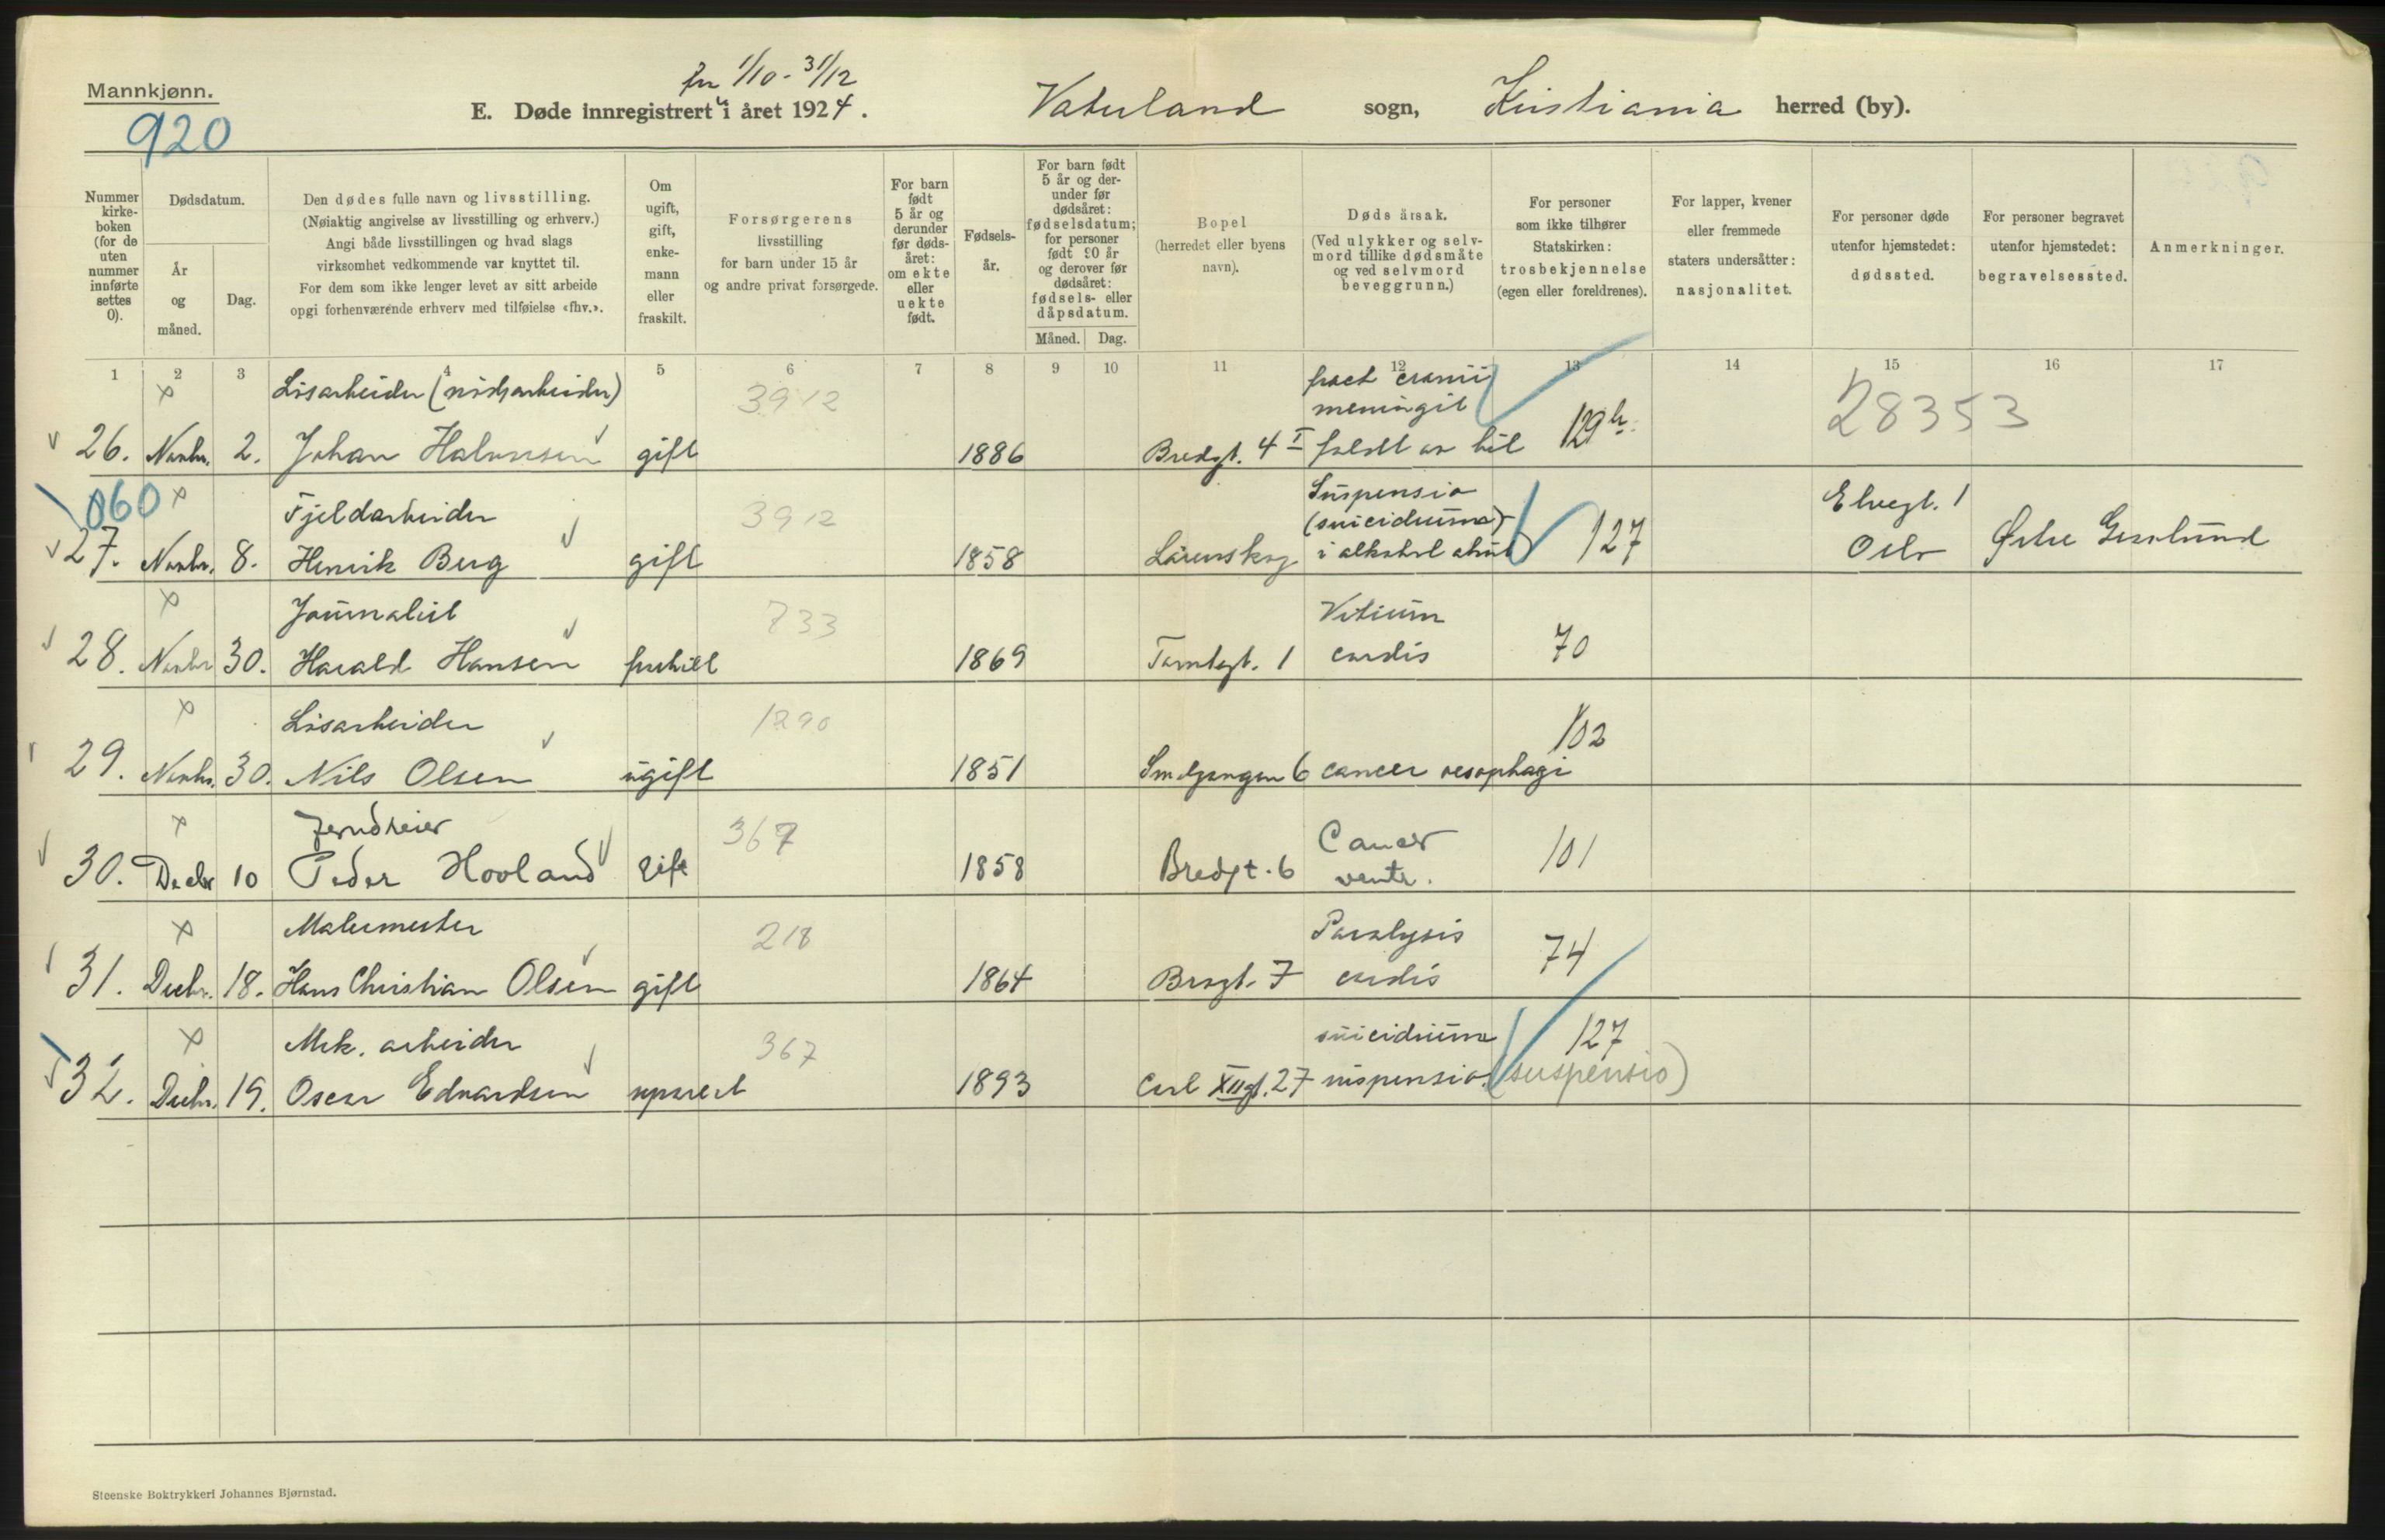 Mannkjønn.
920
fra 1/10 - 31/12
E. Døde innregistrert i året 1924.
Vaterland sogn, Kristiania herred (by).
Nummer kirke-boken (for de uten nummer innførte settes 0).
Dødsdatum.
År og måned.
Dag.
Den dødes fulle navn og livsstilling.
(Nøiaktig angivelse av livsstilling og erhverv.)
Angi både livsstillingen og hvad slags
virksomhet vedkommende var knyttet til.
For dem som ikke lenger levet av sitt arbeide
opgi forhenværende erhverv med tilføielse «fhv.».
Om ugift, gift, enke-mann eller fraskilt.
Forsørgerens
livsstilling
for barn under 15 år
og andre privat forsørgede.
For barn født 5 år og derunder før døds-året: om ekte eller uekte født.
Fødsels-år.
For barn født 5 år og der-under før dødsåret: fødselsdatum; for personer født 90 år og derover før dødsåret: fødsels- eller dåpsdatum.
Måned. Dag.
Bopel
(herredet eller byens navn).
Døds årsak.
(Ved ulykker og selv-mord tillike dødsmåte og ved selvmord beveggrunn.)
For personer
som ikke tilhører
Statskirken:
trosbekjennelse
(egen eller foreldrenes).
For lapper, kvener
eller fremmede
staters undersåtter:
nasjonalitet.
For personer døde
utenfor hjemstedet:
dødssted.
For personer begravet
utenfor hjemstedet:
begravelsessted.
Anmerkninger.
1 2 3 4 5 6 7 8 9 10 11 12 13 14 15 16 17
Løsarbeider 3912 fract cranii
meningit
26. Novbr. 2. Johan Halvorsen gift 1886 Bredgt. 4 I faldt av bil 129 28353
060 Fjeldarbeider 3912 Suspensio Elvegt. 1
(suicidium)
27. Novbr. 8. Henrik Berg gift 1858 Lørenskog i alkohol 127 Oslo Østre Gravlund
Journalist 733 Vitium
28. Novbr 30. Harald Hansen fraskilt 1869 Tomtegt. 1 cordis 70
Løsarbeider 1290 102
29. Novbr. 30. Nils Olsen ugift 1851 Smalgangen 6 cancer oesophagi
Jerndreier 367 Cancer
30. Decbr 10 Peder Hovland Gift 1858 Bredgt. 6 ventr. 101
Malermester 218 Paralysis
31. Decbr. 18. Hans Christian Olsen gift 1864 Brogt. 7 cordis 74
Mek. arbeider 367 suicidium 127
32. Decbr. 19. Oscar Edvardsen separert 1893 Carl XII gt. 27 suspensio. (suspensio)
Steenske Boktrykkeri Johannes Bjørnstad.